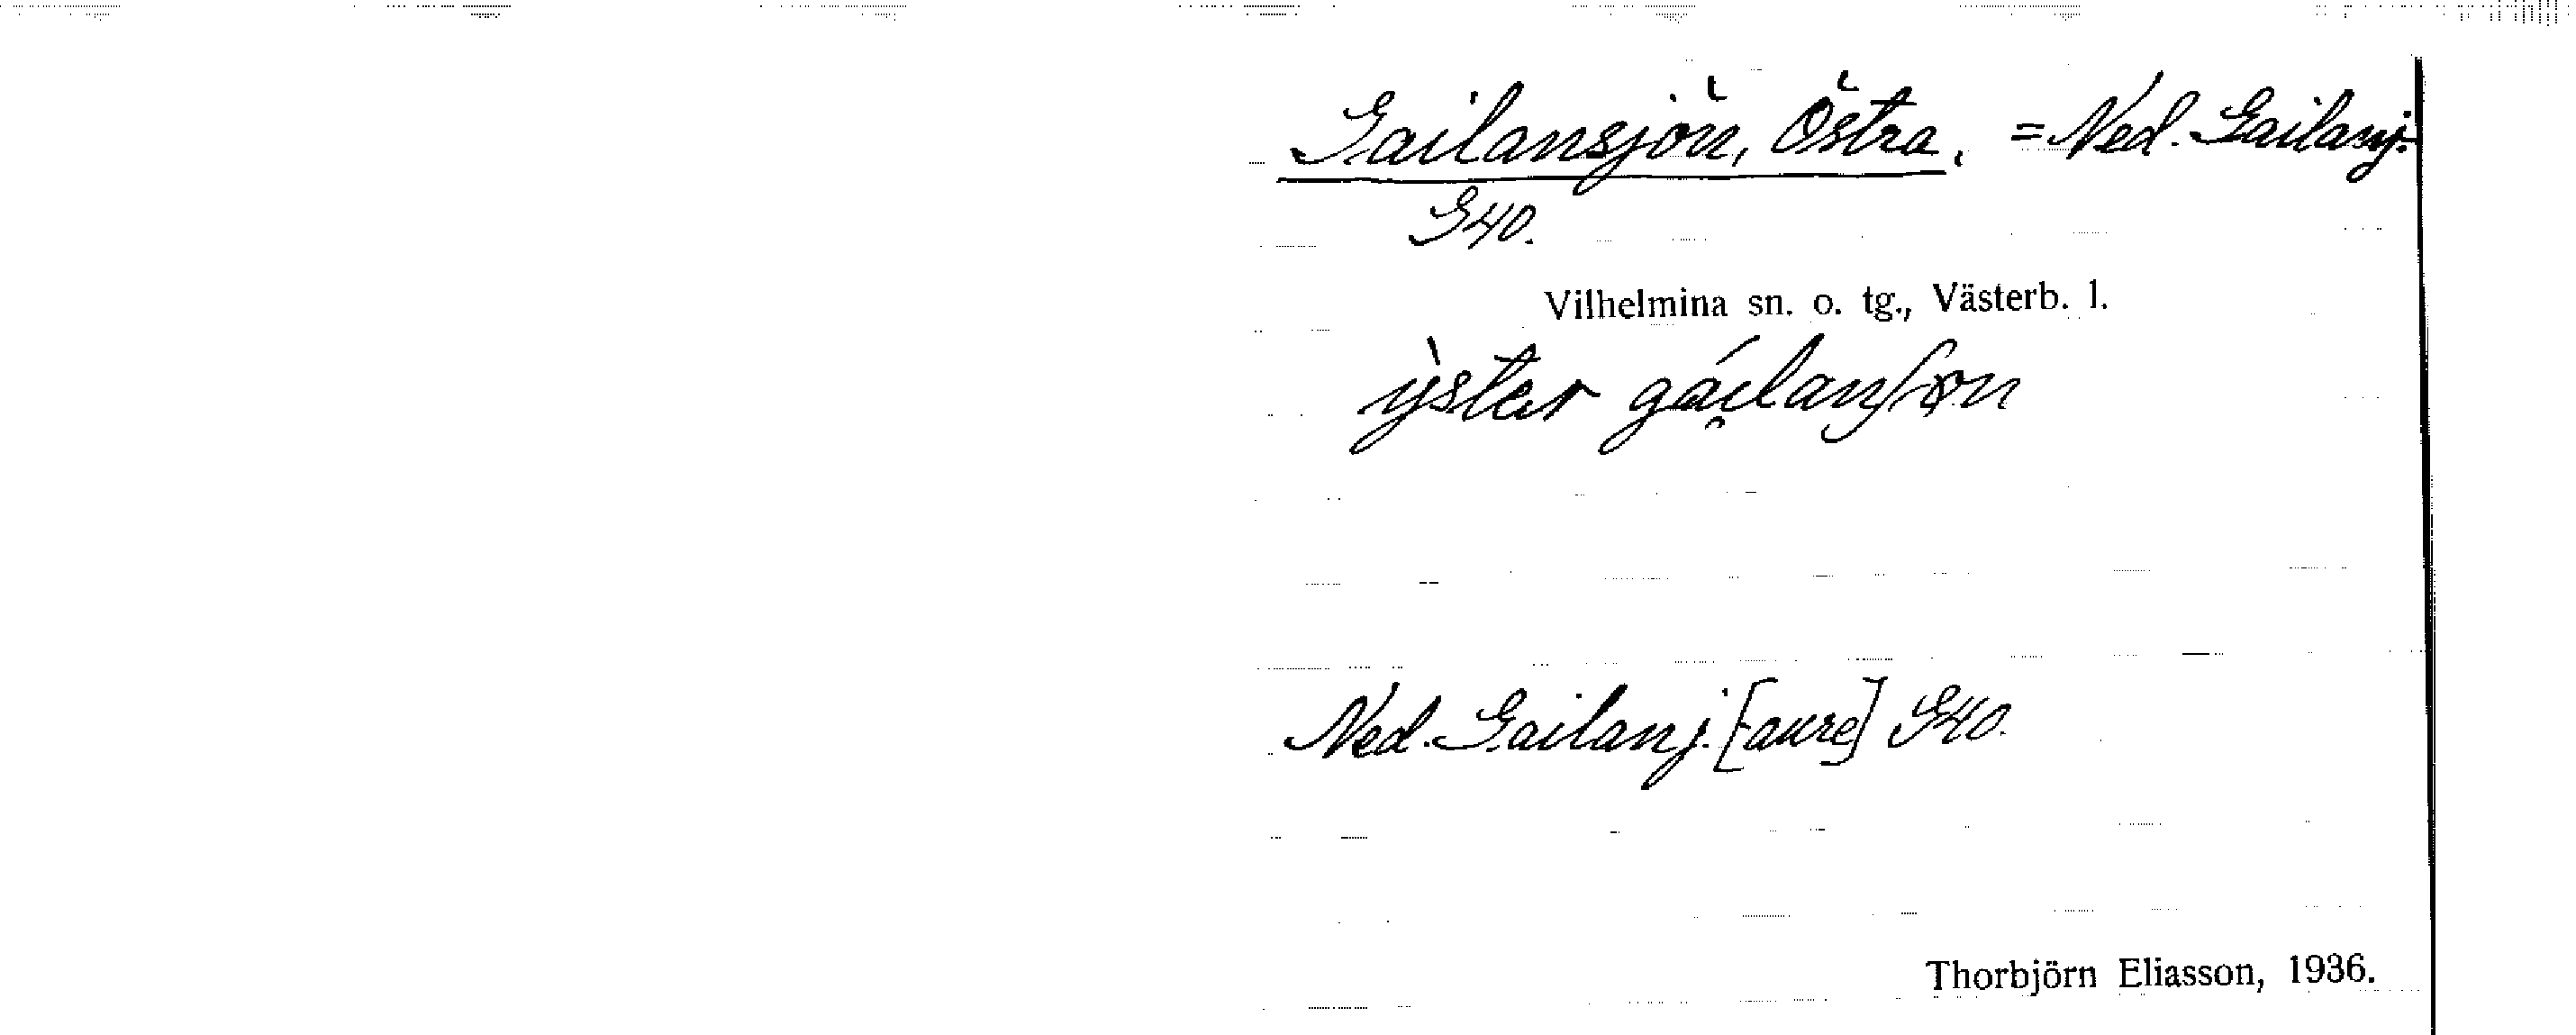 Gailansjön, Östra. = Ned. Gailansj.
G40.
Vilhelmina sn. o. tg., Västerb. l.
Ned. Gailanj. [aure] G40.
Thorbjörn Eliasson, 1936.